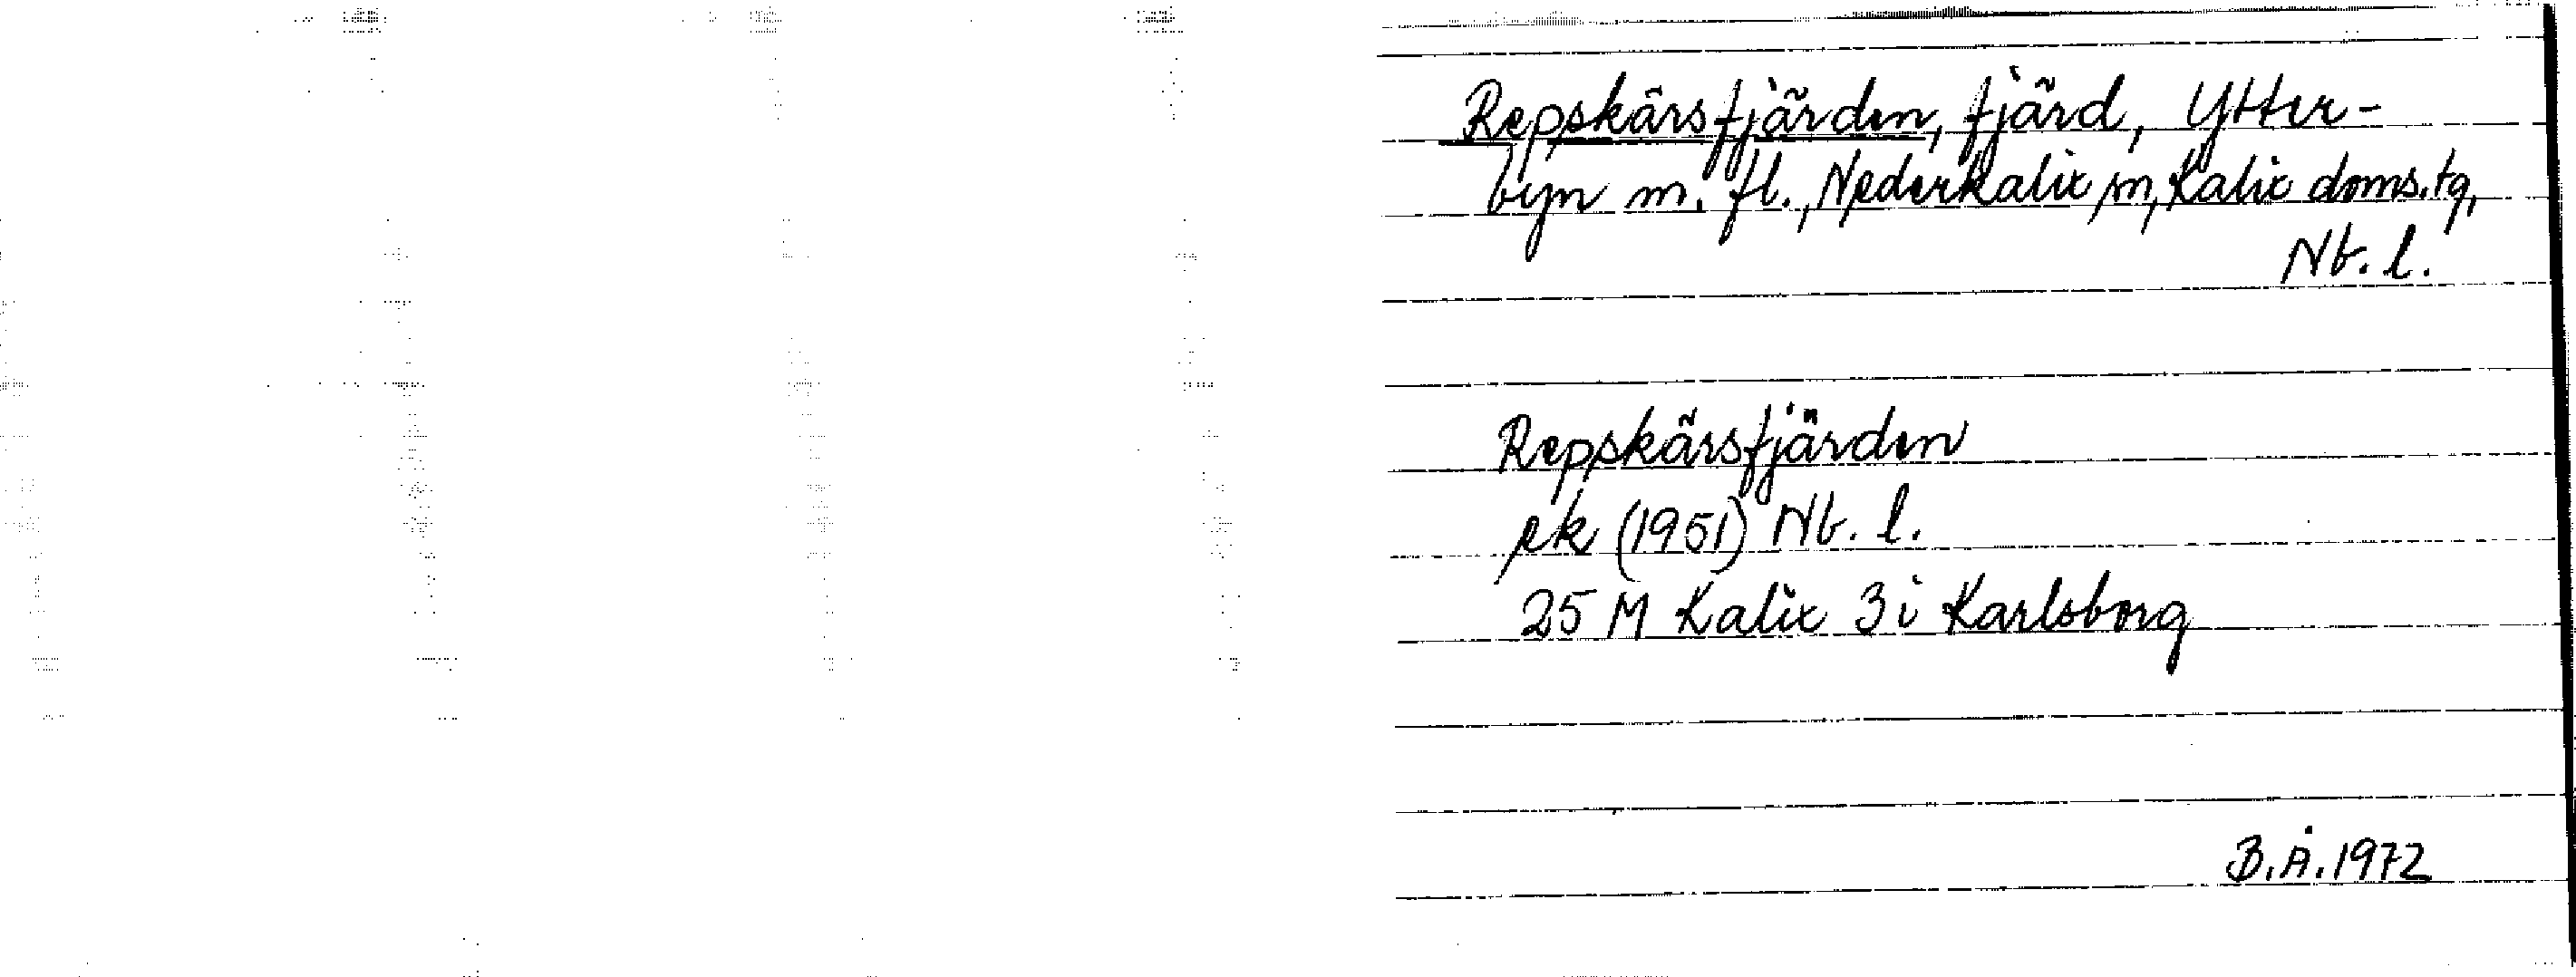 Repskärsfjärden, fjärd, Ytter-
byn m. fl., Nederkalix sn, Kalix doms.tg,
Nb. l.
Repskärsfjärden
ek (1951) Nb. l.
25 M Kalix 3 i Karlsborg
B.Å. 1972